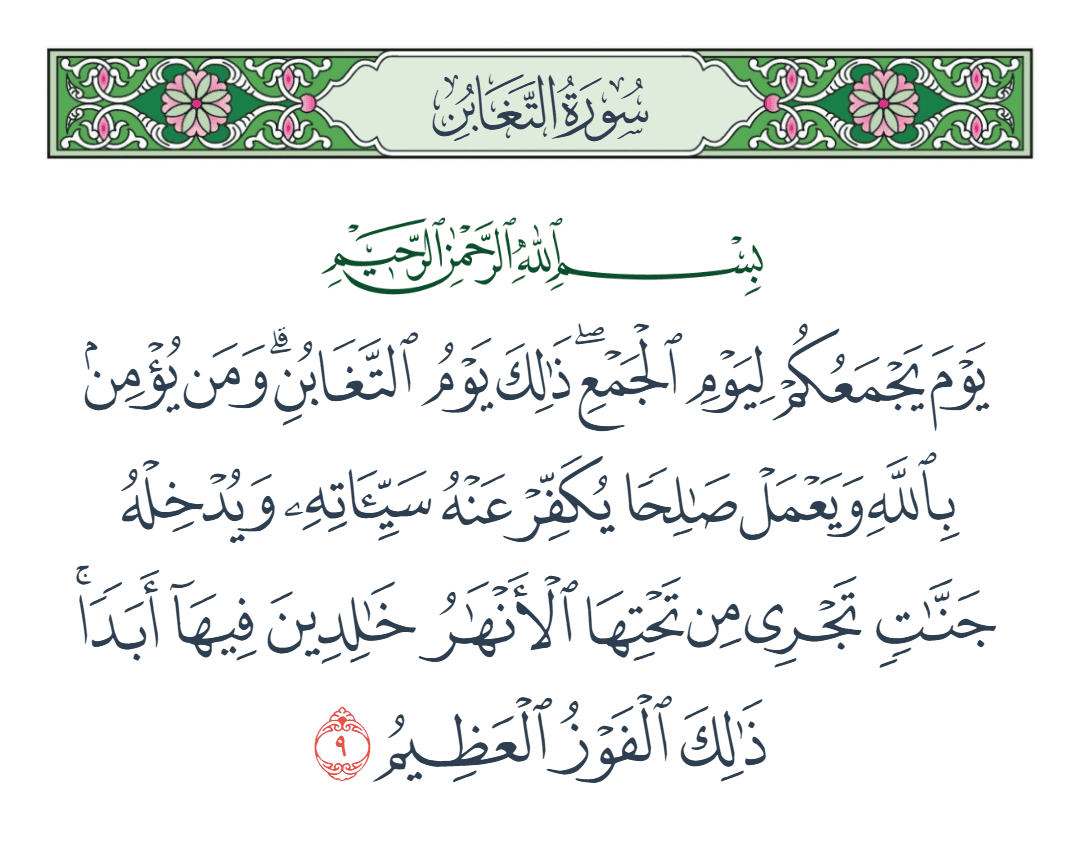 سُورَةُ التَّغَابُن
بِسْمِ ٱللَّهِ ٱلرَّحْمَٰنِ ٱلرَّحِيمِ
يَوْمَ يَجْمَعُكُمْ لِيَوْمِ ٱلْجَمْعِ ۖ ذَٰلِكَ يَوْمُ ٱلتَّغَابُنِ ۗ وَمَن يُؤْمِنۢ
بِٱللَّهِ وَيَعْمَلْ صَٰلِحًا يُكَفِّرْ عَنْهُ سَيِّـَٔاتِهِۦ وَيُدْخِلْهُ
جَنَّٰتٍ تَجْرِى مِن تَحْتِهَا ٱلْأَنْهَٰرُ خَٰلِدِينَ فِيهَآ أَبَدًا ۚ
ذَٰلِكَ ٱلْفَوْزُ ٱلْعَظِيمُ ٩